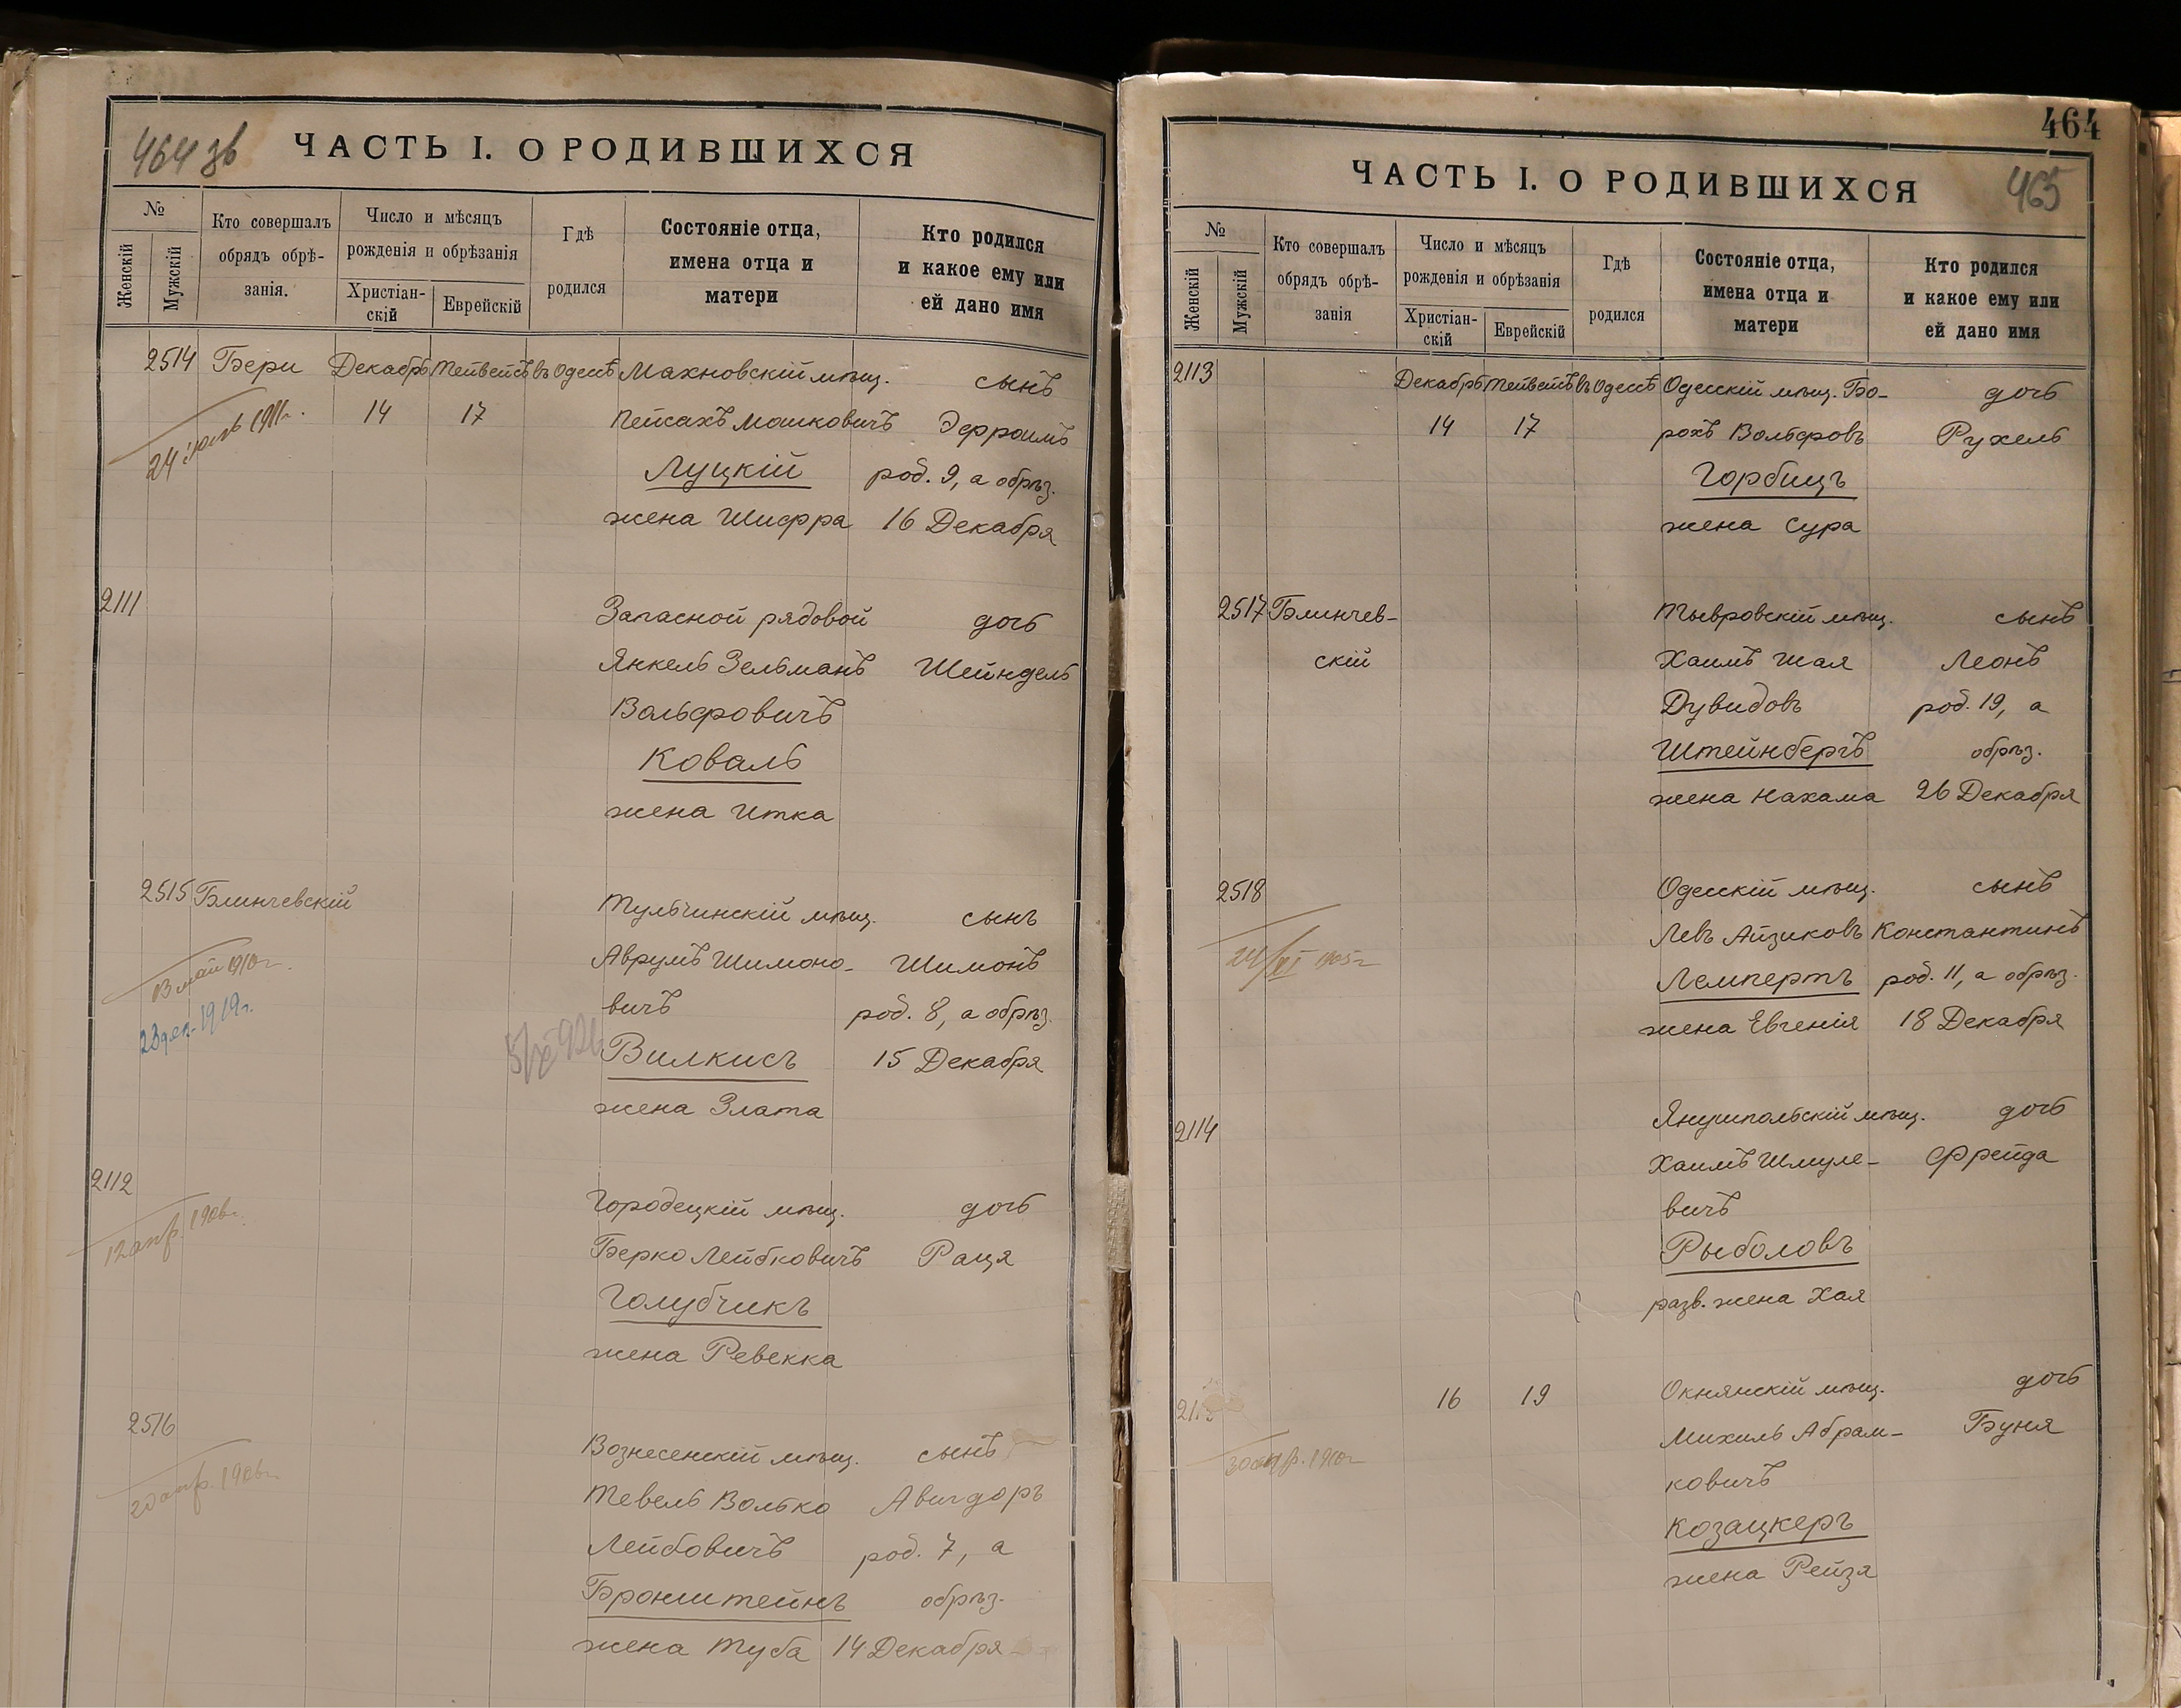 464 зв
ЧАСТЬ I. О РОДИВШИХСЯ
№
Женскій
Мужскій
Кто совершалъ
обрядъ обрѣ-
занія.
Число и мѣсяцъ
рожденія и обрѣзанія
Христіан-
скій
Еврейскій
Гдѣ
родился
Состояніе отца,
имена отца и
матери
Кто родился
и какое ему или
ей дано имя
2514 Бери Декабрь Тейвейсъ въ Одессѣ Махновскій мѣщ. сынъ
14 17 Пейсахъ Мошковичъ Эфроимъ
24 1911г.
Луцкій род. 9, а обрѣз.
жена Шифра 16 Декабря
2111 Запасной рядовой дочь
Янкель Зельманъ Шейндель
Вольфовичъ
Коваль
жена Итка
2515 Блинчевскій Тульчинскій мѣщ. сынъ
Аврумъ Шимоно- Шимонъ
13 май 1910г.
вичъ род. 8, а обрѣз.
23 дек. 1919г.
Вилкисъ 15 Декабря
жена Злата
2112 Городецкій мѣщ. дочь
12 апр. 1906г.
Берко Лейбковичъ Раця
Голубчикъ
жена Ревекка
2516 Вознесенскій мѣщ. сынъ
20 апр. 1906г.
Тевель Волько Авигдоръ
Лейбовичъ род. 7, а
Бронштейнъ обрѣз.
жена Туба 14 Декабря
464
ЧАСТЬ I. О РОДИВШИХСЯ
465
№
Женскій
Мужскій
Кто совершалъ
обрядъ обрѣ-
занія
Число и мѣсяцъ
рожденія и обрѣзанія
Христіан-
скій
Еврейскій
Гдѣ
родился
Состояніе отца,
имена отца и
матери
Кто родился
и какое ему или
ей дано имя
2113 Декабрь Тейвейсъ въ Одессѣ Одесскій мѣщ. Бо- дочь
14 17 рохъ Вольфовъ Рухель
Горбицъ
жена Сура
2517 Блинчев- Тывровскій мѣщ. сынъ
скій Хаимъ Шая Леонъ
Дувидовъ род. 19, а
Штейнбергъ обрѣз.
жена Нахама 26 Декабря
2518 Одесскій мѣщ. сынъ
Левъ Айзиковъ Константинъ
24/XI 1905г.
Лемпертъ род. 11, а обрѣз.
жена Евгенія 18 Декабря
2114 Янушпольскій мѣщ. дочь
Хаимъ Шмуле- Фрейда
вичъ
Рыболовъ
разв. жена Хая
16 19 Окнянскій мѣщ. дочь
Михиль Абрам- Буня
1910г.
ковичъ
Козацкеръ
жена Рейзя